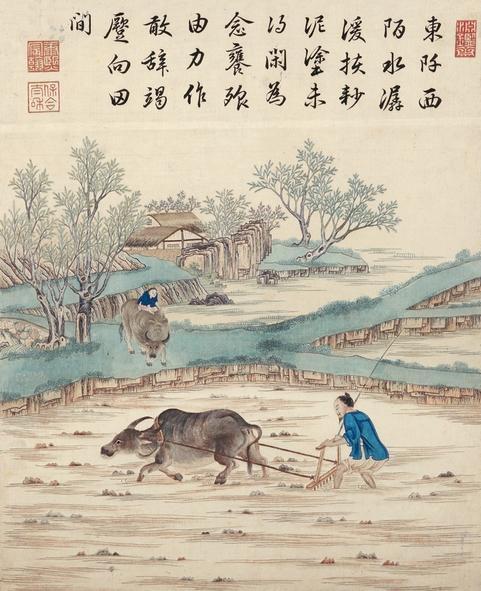 東阡西
陌水潺
湲扶耖
泥塗未
得閑為
念饔飧
由力作
敢辭竭
蹷向田
間
保合太和